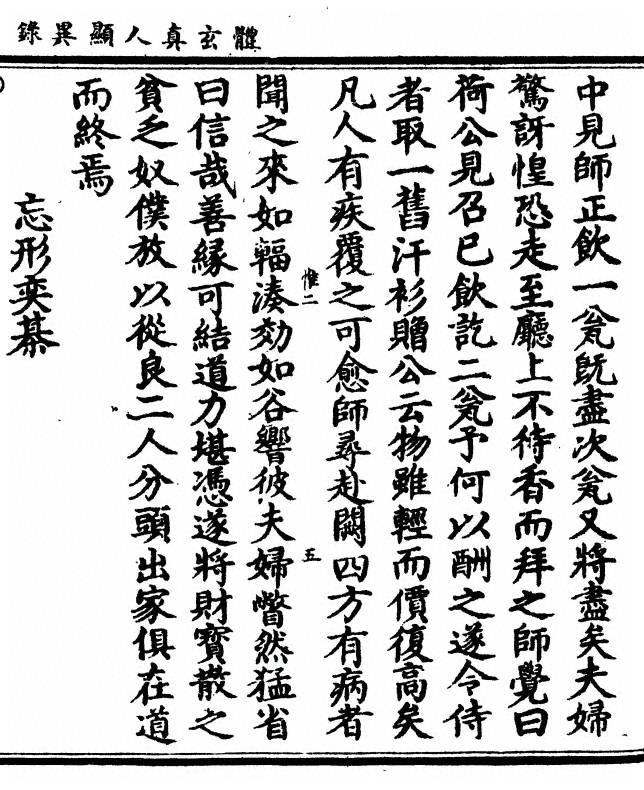 體玄真人顯異錄
中見師正飲一瓮既盡次瓮又將盡矣夫婦
驚訝惶恐走至廳上不待香而拜之師覺曰
荷公見召已飲訖二瓮予何以酬之遂令侍
者取一舊汗衫贈公云物雖輕而價復高矣
凡人有疾覆之可愈師尋赴闕四方有病者
聞之來如輻湊効如谷響彼夫婦瞥然猛省
惟二
五
曰信哉善緣可結道力堪憑遂將財寶散之
貧乏奴僕放以從良二人分頭出家俱在道
而終焉
忘形奕棊